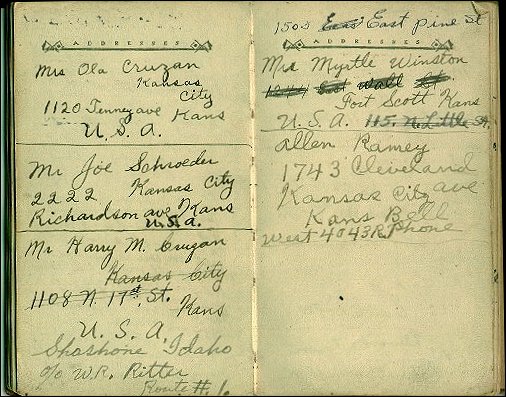 ADDRESSES
Mrs Ola Cruzan
Kansas
City
1120 Tenney ave Kans
U. S. A.
Mr Joe Schroeder
2222 Kansas City
Richardson ave Kans
U.S.a.
Mr Harry M. Crugan
Kansas City
1108 N. 17st. St.
Kans
U. S. A.
Shoshone Idaho
c/o W.R. Ritter
Route #1.
1503 East Pine St
ADDRESSES
Mrs Myrtle Winston
1241 East Wall St
Fort Scott Kans
U. S. A. 115. N. Little St.
allen Ramey
1743 Cleveland
Kansas City ave
Kans Bell
West 4043R. Phone